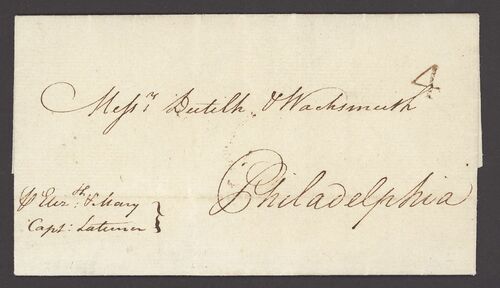 4
Messrs Dutilh & Wachsmuth
Philadelphia
Elizth: & Mary
Capt: Latimer